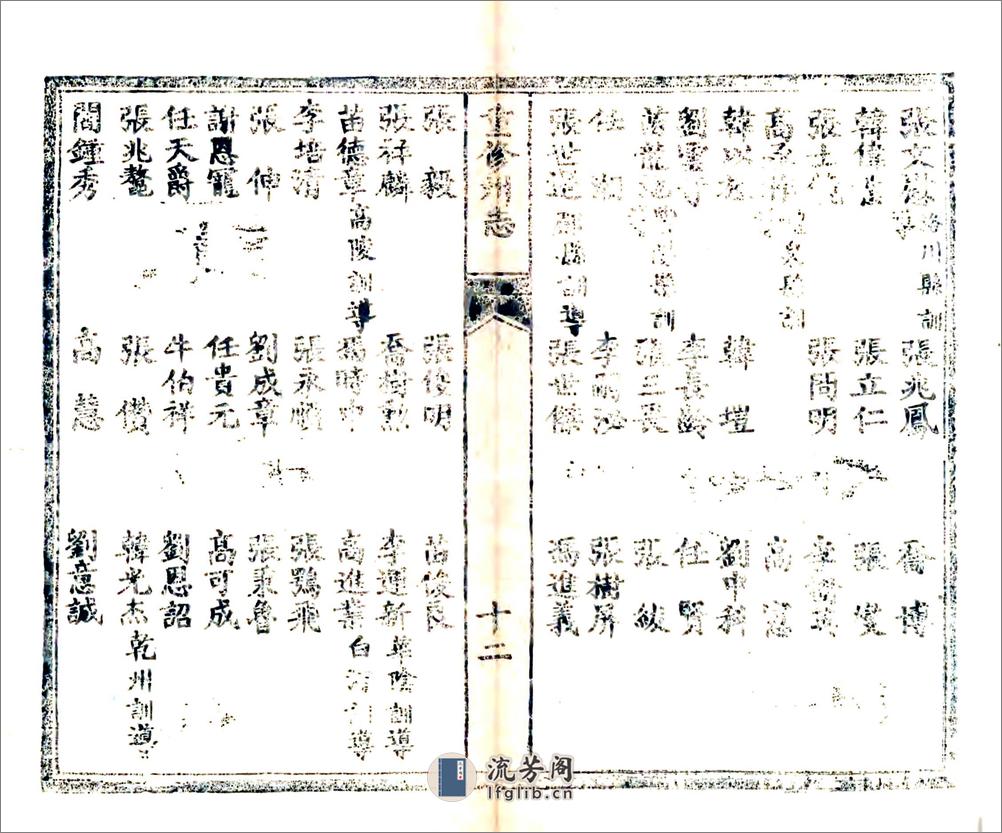 張文 洛川縣訓 張兆鳳 喬博
韓偉 張立仁 張
張士 張問明 李
高 縣訓 高
韓以 韓塏 劉申科
劉雲 李長齡 任賢
苗龍 訓 張三畏 張紱
任 李 張樹屏
張世 縣訓導 張世傑 馮進義
重修州志 十二
張毅 張俊明 苗俊民
張祥麟 喬樹勲 李運新華陰訓導
苗德章高陵訓導 馮時中 高進業白河訓導
李培清 張永順 張鶚飛
張伸 劉成章 張秉魯
謝恩寵 任貴元 高可成
任天爵 牛伯祥 劉恩詔
張兆鰲 張儧 韓光杰乾州訓導
閻鍾秀 高慧 劉意誠
流芳阁
lfglib.cn